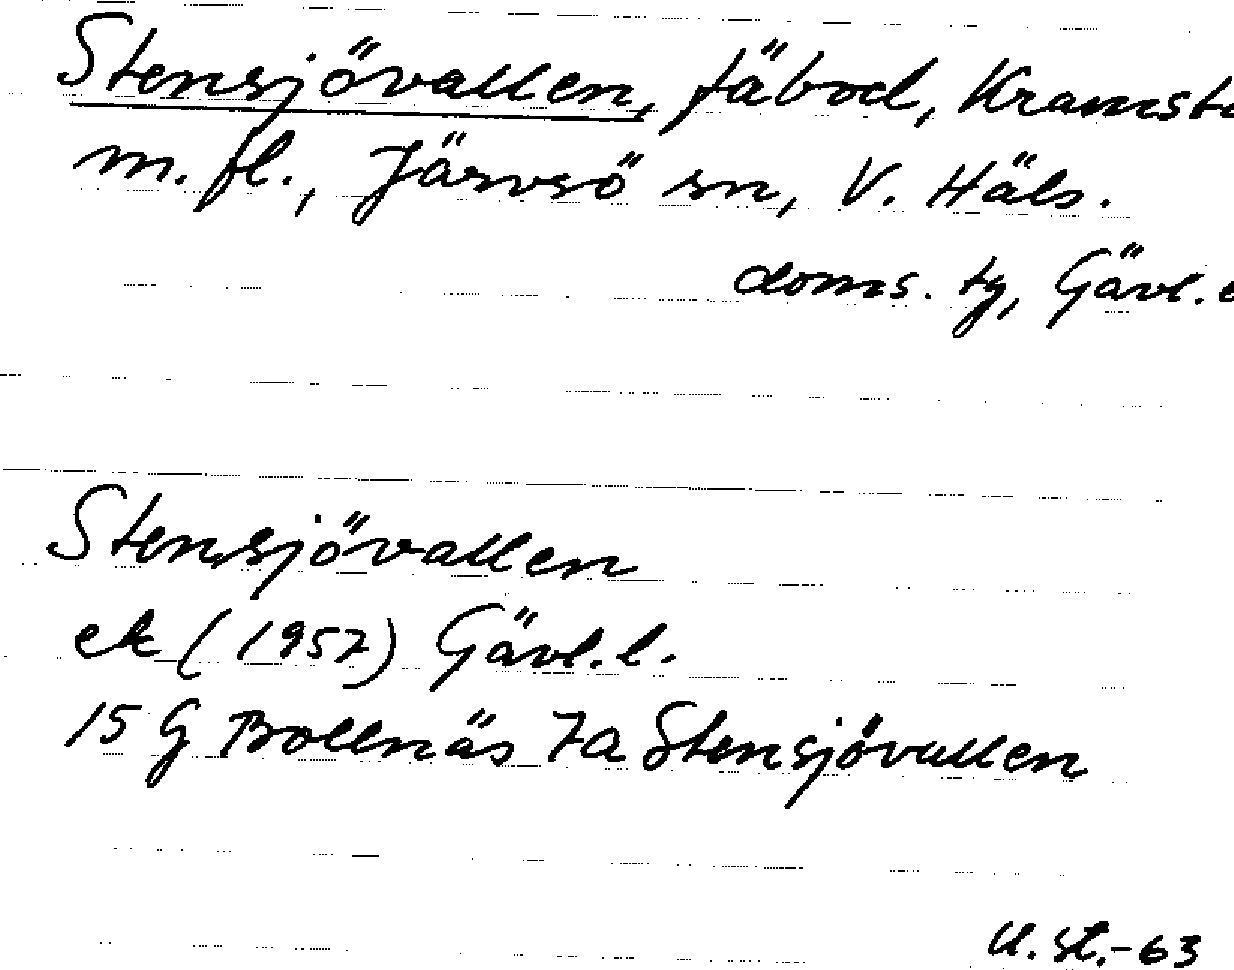 Stensjövallen, fäbod, Kramsta
m. fl., Järvsö sn, V. Häls.
doms. tg, Gävl.
Stensjövallen
ek (1957) Gävl. l.
15 G Bollnäs 7a Stensjövallen
U. St. -63